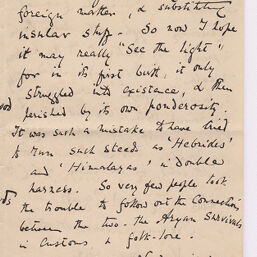 foreign matter, & substituting
insular stuff. So now I hope
it may really "See the light",
for in its first birth, it only
struggled into existence, & then
perished by its own ponderosity.
It was such a mistake to have tried
to run such steeds as 'Hebrides'
and 'Himalayas' in Double
harness. So very few people took
the trouble to follow out the Connection
between the two - the Aryan Survivals
in Customs & folk-lore.